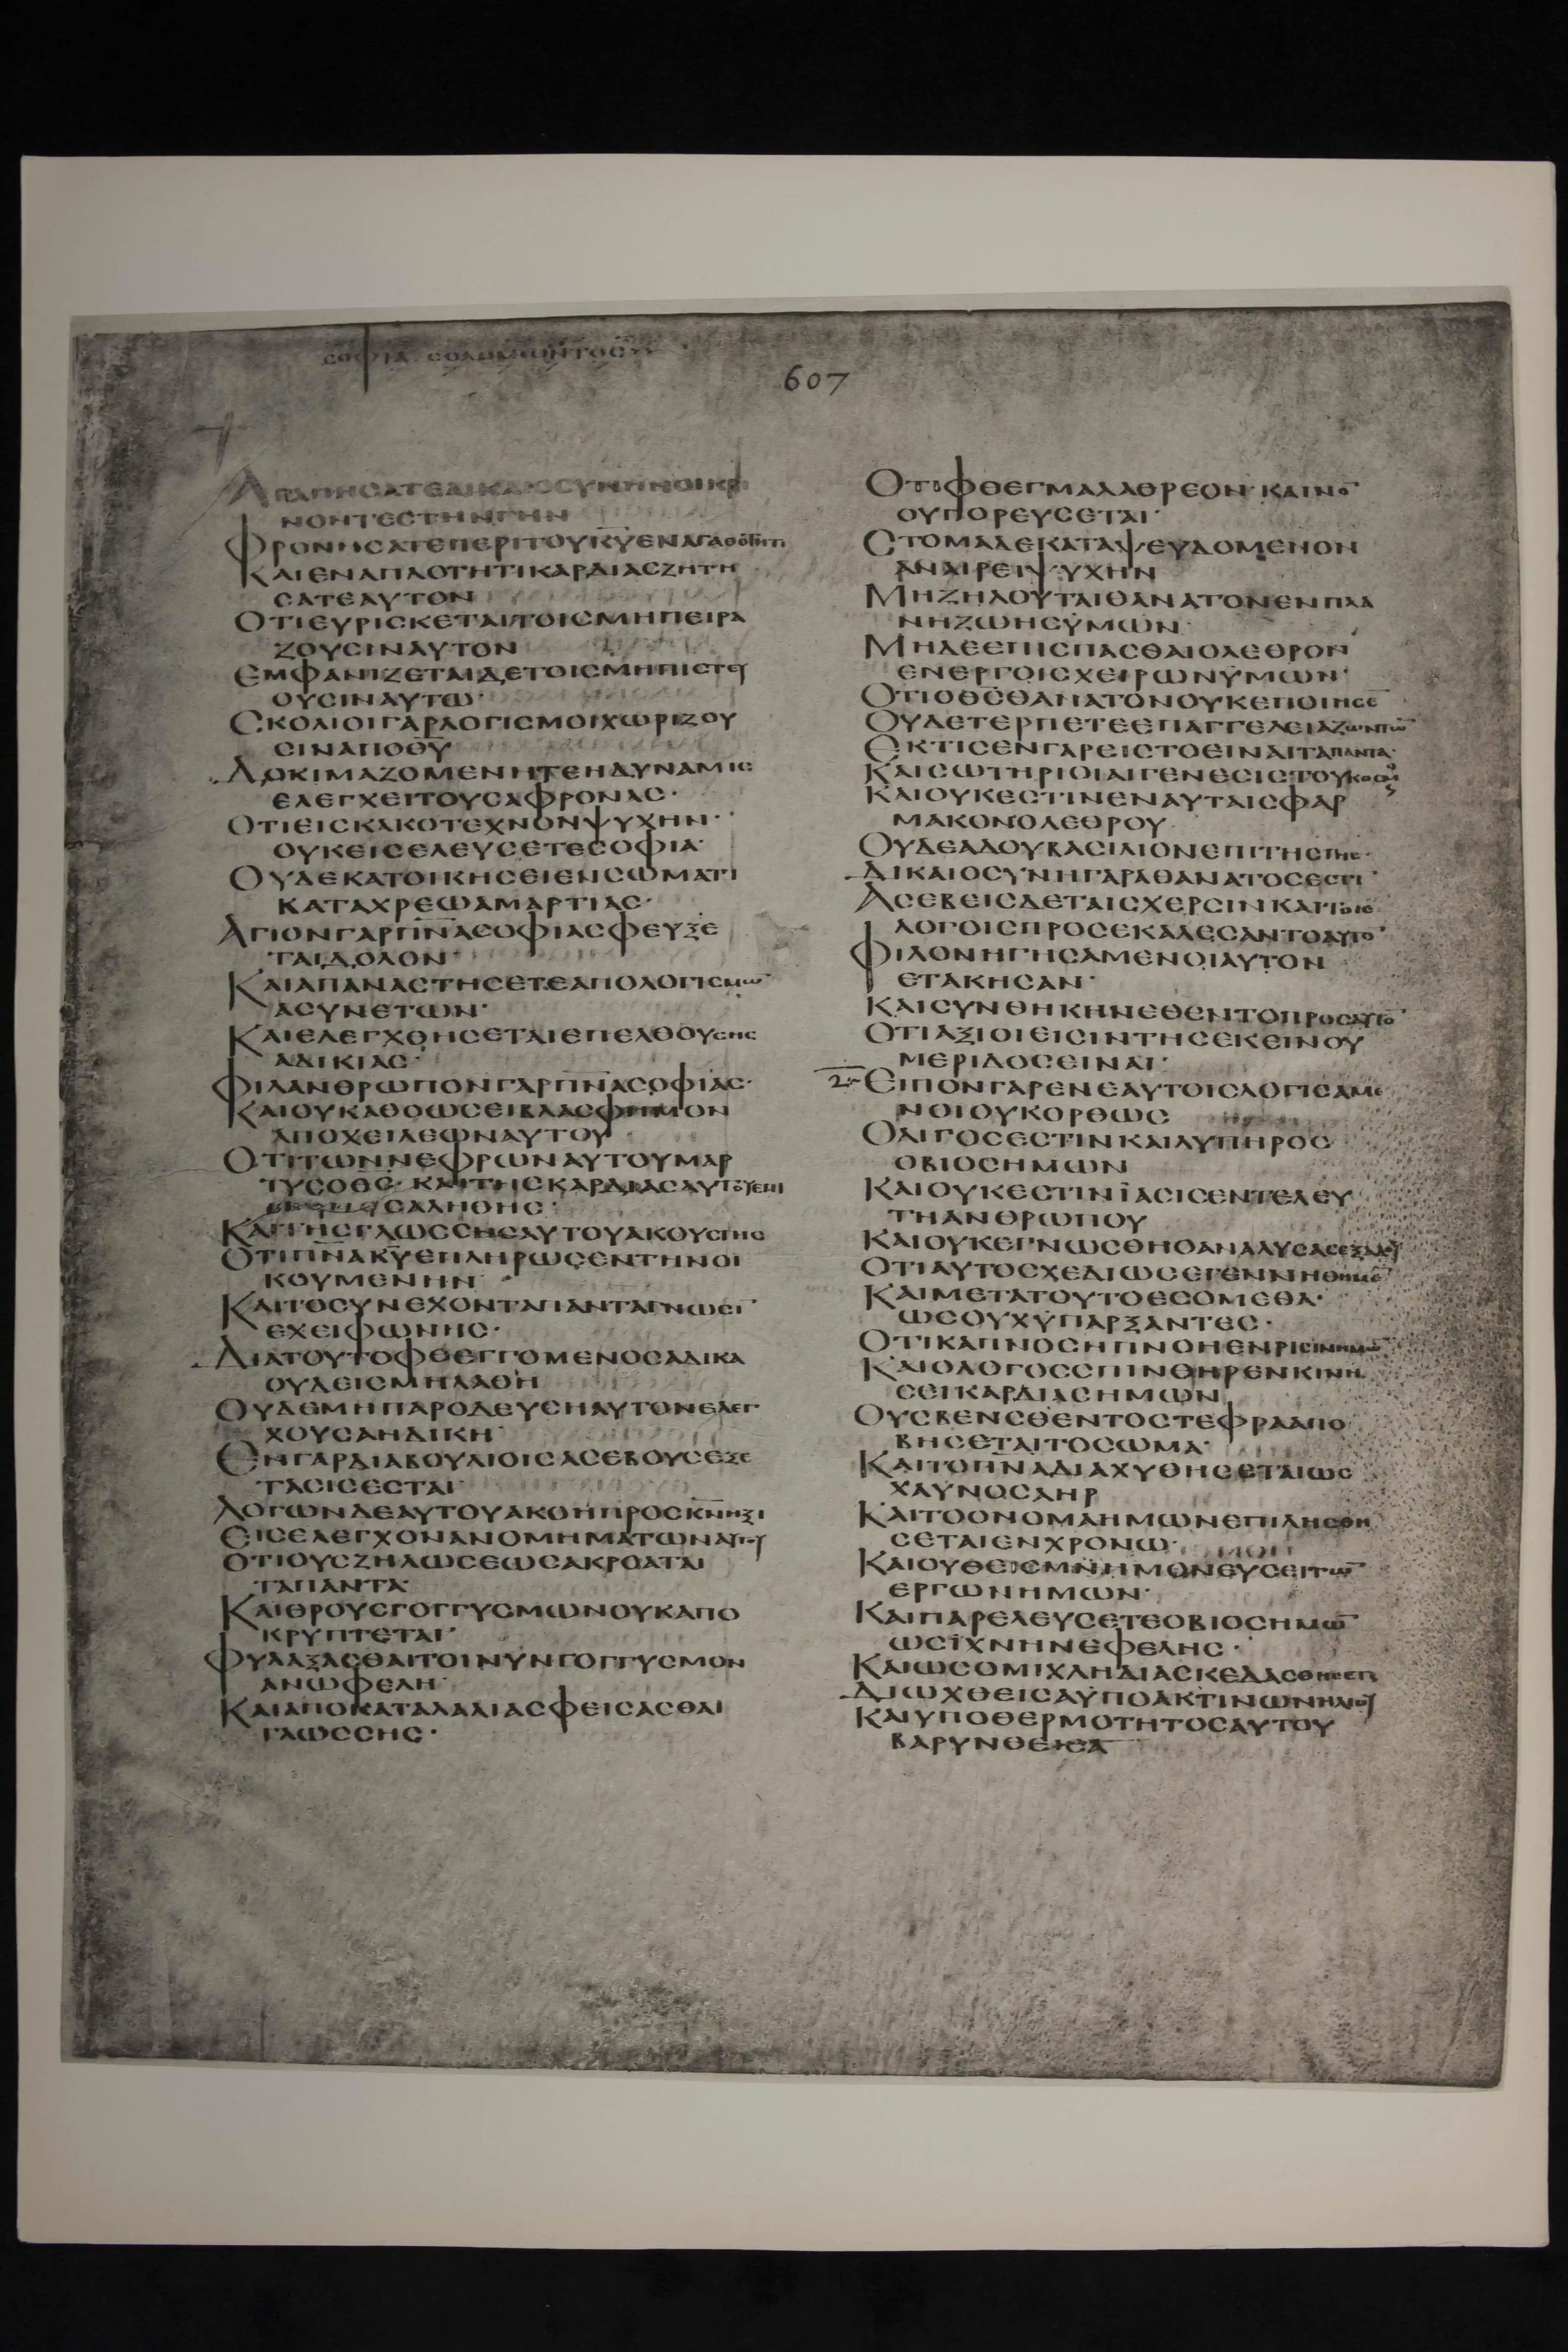 ΣΟΦΙΑ ΣΟΛΟΜΩΝΤΟΣ
607
ΑΓΑΠΗΣΑΤΕΔΙΚΑΙΟΣΥΝΗΝΟΙΚΡΙ
ΝΟΝΤΕΣΤΗΝΓΗΝ
ΦΡΟΝΗΣΑΤΕΠΕΡΙΤΟΥΚΥ̅ΕΝΑΓΑΘΟΤΗΤΙ
ΚΑΙΕΝΑΠΛΟΤΗΤΙΚΑΡΔΙΑΣΖΗΤΗ
ΣΑΤΕΑΥΤΟΝ
ΟΤΙΕΥΡΙΣΚΕΤΑΙΤΟΙΣΜΗΠΕΙΡΑ
ΖΟΥΣΙΝΑΥΤΟΝ
ΕΜΦΑΝΙΖΕΤΑΙΔΕΤΟΙΣΜΗΠΙΣΤΕΥ
ΟΥΣΙΝΑΥΤΩ·
ΣΚΟΛΙΟΙΓΑΡΛΟΓΙΣΜΟΙΧΩΡΙΖΟΥ
ΣΙΝΑΠΟΘΥ̅
ΔΟΚΙΜΑΖΟΜΕΝΗΤΕΗΔΥΝΑΜΙΣ
ΕΛΕΓΧΕΙΤΟΥΣΑΦΡΟΝΑΣ·
ΟΤΙΕΙΣΚΑΚΟΤΕΧΝΟΝΨΥΧΗΝ·
ΟΥΚΕΙΣΕΛΕΥΣΕΤΕΣΟΦΙΑ·
ΟΥΔΕΚΑΤΟΙΚΗΣΕΙΕΝΣΩΜΑΤΙ
ΚΑΤΑΧΡΕΩΑΜΑΡΤΙΑΣ·
ΑΓΙΟΝΓΑΡΠΝ̅ΑΣΟΦΙΑΣΦΕΥΞΕ
ΤΑΙΔΟΛΟΝ·
ΚΑΙΑΠΑΝΑΣΤΗΣΕΤΕΑΠΟΛΟΓΙΣΜΩ̅
ΑΣΥΝΕΤΩΝ·
ΚΑΙΕΛΕΓΧΘΗΣΕΤΑΙΕΠΕΛΘΟΥΣΗΣ
ΑΔΙΚΙΑΣ·
ΦΙΛΑΝΘΡΩΠΟΝΓΑΡΠΝ̅ΑΣΟΦΙΑΣ·
ΚΑΙΟΥΚΑΘΟΩΣΕΙΒΛΑΣΦΗΜΟΝ
ΑΠΟΧΕΙΛΕΩΝΑΥΤΟΥ
ΟΤΙΤΩΝΝΕΦΡΩΝΑΥΤΟΥΜΑΡ
ΤΥΣΟΘΣ̅· ΚΑΙΤΗΣΚΑΡΔΙΑΣΑΥΤΟΥΕΠΙ
ΣΑΛΗΘΗΣ·
ΚΑΙΤΗΣΓΛΩΣΣΗΣΑΥΤΟΥΑΚΟΥΣΤΗΣ
ΟΤΙΠΝ̅ΑΚΥ̅ΕΠΛΗΡΩΣΕΝΤΗΝΟΙ
ΚΟΥΜΕΝΗΝ
ΚΑΙΤΟΣΥΝΕΧΟΝΤΑΠΑΝΤΑΓΝΩΣΙ̅
ΕΧΕΙΦΩΝΗΣ·
ΔΙΑΤΟΥΤΟΦΘΕΓΓΟΜΕΝΟΣΑΔΙΚΑ
ΟΥΔΕΙΣΜΗΛΑΘΗ
ΟΥΔΕΜΗΠΑΡΟΔΕΥΣΗΑΥΤΟΝΕΛΕΓ
ΧΟΥΣΑΗΔΙΚΗ·
ΕΝΓΑΡΔΙΑΒΟΥΛΙΟΙΣΑΣΕΒΟΥΣΕΞΕ
ΤΑΣΙΣΕΣΤΑΙ·
ΛΟΓΩΝΔΕΑΥΤΟΥΑΚΟΗΠΡΟΣΚΝ̅ΗΞΙ
ΕΙΣΕΛΕΓΧΟΝΑΝΟΜΗΜΑΤΩΝΑΥΤΟΥ
ΟΤΙΟΥΣΖΗΛΩΣΕΩΣΑΚΡΟΑΤΑΙ
ΤΑΠΑΝΤΑ·
ΚΑΙΘΡΟΥΣΓΟΓΓΥΣΜΩΝΟΥΚΑΠΟ
ΚΡΥΠΤΕΤΑΙ·
ΦΥΛΑΞΑΣΘΑΙΤΟΙΝΥΝΓΟΓΓΥΣΜΟΝ
ΑΝΩΦΕΛΗ·
ΚΑΙΑΠΟΚΑΤΑΛΑΛΙΑΣΦΕΙΣΑΣΘΑΙ
ΓΛΩΣΣΗΣ·
ΟΤΙΦΘΕΓΜΑΛΑΘΡΕΟΝ·ΚΑΙΝΟ̅
ΟΥΠΟΡΕΥΣΕΤΑΙ·
ΣΤΟΜΑΔΕΚΑΤΑΨΕΥΔΟΜΕΝΟΝ
ΑΝΑΙΡΕΙΨΥΧΗΝ
ΜΗΖΗΛΟΥΤΑΙΘΑΝΑΤΟΝΕΝΠΛΑ
ΝΗΖΩΗΣΥΜΩΝ·
ΜΗΔΕΕΠΙΣΠΑΣΘΑΙΟΛΕΘΡΟΝ
ΕΝΕΡΓΟΙΣΧΕΙΡΩΝΥΜΩΝ·
ΟΤΙΟΘΣ̅ΘΑΝΑΤΟΝΟΥΚΕΠΟΙΗΣΕ̅
ΟΥΔΕΤΕΡΠΕΤΕΕΠΑΓΓΕΛΕΙΑΖΩΝΤΩ̅
ΕΚΤΙΣΕΝΓΑΡΕΙΣΤΟΕΙΝΑΙΤΑΠΑΝΤΑ·
ΚΑΙΣΩΤΗΡΙΟΙΑΙΓΕΝΕΣΙΣΤΟΥΚΟΣΜΟΥ
ΚΑΙΟΥΚΕΣΤΙΝΕΝΑΥΤΑΙΣΦΑΡ
ΜΑΚΟΝΟΛΕΘΡΟΥ
ΟΥΔΕΑΔΟΥΒΑΣΙΛΙΟΝΕΠΙΤΗΣΓΗΣ·
ΔΙΚΑΙΟΣΥΝΗΓΑΡΑΘΑΝΑΤΟΣΕΣΤΙ·
ΑΣΕΒΕΙΣΔΕΤΑΙΣΧΕΡΣΙΝΚΑΙΤΟΙΣ
ΛΟΓΟΙΣΠΡΟΣΕΚΑΛΕΣΑΝΤΟΑΥΤΟ̅
ΦΙΛΟΝΗΓΗΣΑΜΕΝΟΙΑΥΤΟΝ
ΕΤΑΚΗΣΑΝ·
ΚΑΙΣΥΝΘΗΚΗΝΕΘΕΝΤΟΠΡΟΣΑΥΤΟ̅
ΟΤΙΑΞΙΟΙΕΙΣΙΝΤΗΣΕΚΕΙΝΟΥ
ΜΕΡΙΔΟΣΕΙΝΑΙ·
2 ΕΙΠΟΝΓΑΡΕΝΕΑΥΤΟΙΣΛΟΓΙΣΑΜΕ
ΝΟΙΟΥΚΟΡΘΩΣ
ΟΛΙΓΟΣΕΣΤΙΝΚΑΙΛΥΠΗΡΟΣ
ΟΒΙΟΣΗΜΩΝ
ΚΑΙΟΥΚΕΣΤΙΝΪΑΣΙΣΕΝΤΕΛΕΥ
ΤΗΑΝΘΡΩΠΟΥ
ΚΑΙΟΥΚΕΓΝΩΣΘΗΟΑΝΑΛΥΣΑΣΕΞΑΔΟΥ
ΟΤΙΑΥΤΟΣΧΕΔΙΩΣΕΓΕΝΝΗΘΗΜΕ̅
ΚΑΙΜΕΤΑΤΟΥΤΟΕΣΟΜΕΘΑ·
ΩΣΟΥΧΥΠΑΡΞΑΝΤΕΣ·
ΟΤΙΚΑΠΝΟΣΗΠΝΟΗΕΝΡΙΣΙΝΗΜΩ̅
ΚΑΙΟΛΟΓΟΣΣΠΙΝΘΗΡΕΝΚΙΝΗ
ΣΕΙΚΑΡΔΙΑΣΗΜΩΝ
ΟΥΣΒΕΝΣΘΕΝΤΟΣΤΕΦΡΑΑΠΟ
ΒΗΣΕΤΑΙΤΟΣΩΜΑ·
ΚΑΙΤΟΠΝ̅ΑΔΙΑΧΥΘΗΣΕΤΑΙΩΣ
ΧΑΥΝΟΣΑΗΡ
ΚΑΙΤΟΟΝΟΜΑΗΜΩΝΕΠΙΛΗΣΘΗ
ΣΕΤΑΙΕΝΧΡΟΝΩ·
ΚΑΙΟΥΘΕΙΣΜΝΗΜΟΝΕΥΣΕΙΤΩ̅
ΕΡΓΩΝΗΜΩΝ·
ΚΑΙΠΑΡΕΛΕΥΣΕΤΕΟΒΙΟΣΗΜΩ̅
ΩΣΪΧΝΗΝΕΦΕΛΗΣ·
ΚΑΙΩΣΟΜΙΧΛΗΔΙΑΣΚΕΔΑΣΘΗΣΕΤ
ΔΙΩΧΘΕΙΣΑΥΠΟΑΚΤΙΝΩΝΗΛΙΟΥ
ΚΑΙΥΠΟΘΕΡΜΟΤΗΤΟΣΑΥΤΟΥ
ΒΑΡΥΝΘΕΙΣΑ